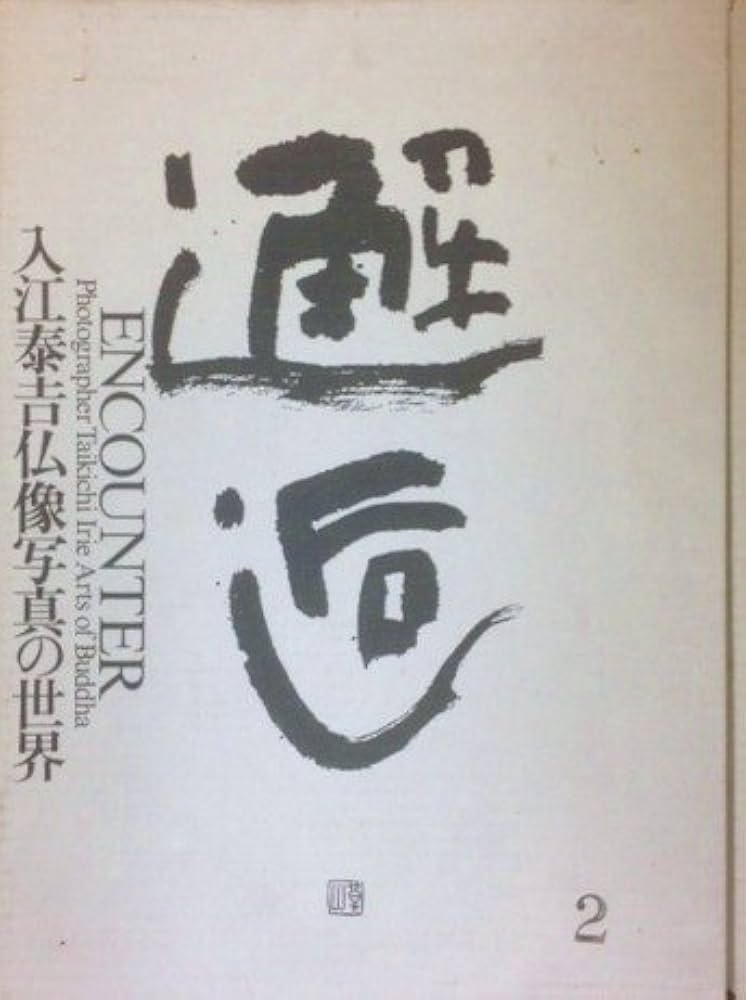 邂逅
ENCOUNTER
Photographer Taikichi Irie Arts of Buddha
入江泰吉仏像写真の世界
2